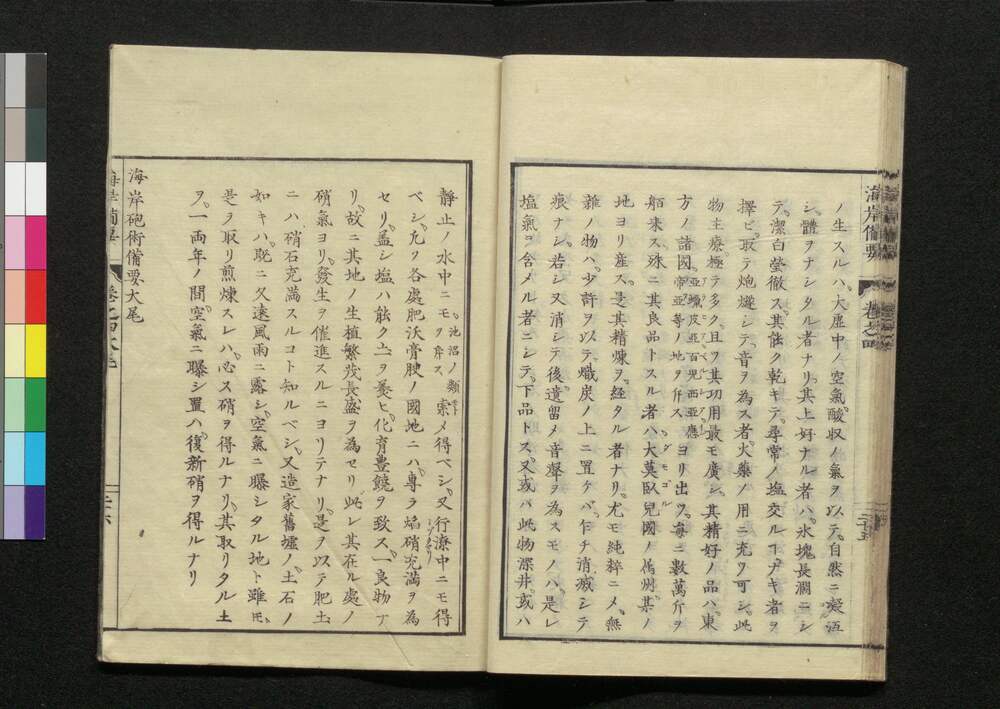 海岸備要
巻之四
二十五
ノ生スルハ、大虚中ノ空氣、酸収ノ氣ヲ以テ、自然ニ凝冱
シ、體ヲナシタル者ナリ、其上好ナル者ハ、氷塊長濶ニシ
テ、潔白瑩徹ス、其能ク乾キテ、尋常ノ塩交ルヿナキ者ヲ
擇ビ、取テ炮爔シテ、音ヲ為ス者、火藥ノ用ニ充ツ可シ、此
物主療、極テ多ク、且ツ其功用最モ廣シ、其精好ノ品ハ、東
方ノ諸國、亞蠟皮亞百兒西亞應帝亞等ノ地ヲ斥スヨリ出ツ、毎ニ數萬斤ヲ
舶来ス、殊ニ其良品トスル者ハ、大莫臥兒國ノ属州某ノ
地ヨリ産ス、是其精煉ヲ経タル者ナリ、尤モ純粹ニメ、無
雜ノ物ハ、少許ヲ以テ、熾炭ノ上ニ置ケバ、乍チ消㓕シテ
痕ナシ、若シ又消シテ後、遺留メ音聲ヲ為スモノハ、是レ
塩氣ヲ含メル者ニシテ、下品トス、又或バ此物深井、或ハ
静止ノ水中ニモ池沼ノ類ヲ斥ス索メ得ベシ、又行潦中ニモ得
ベシ、凢ソ各處肥沃膏腴ノ國地ニハ、專ラ焔硝充満ヲ為
セリ、葢シ塩ハ能ク土ヲ養ヒ、化育豊饒ヲ致ス、一良物ナ
リ、故ニ其地ノ生植繁茂長盛ヲ為セリ、此レ其在ル處ノ
硝氣ヨリ、發生ヲ催進スルニヨリテナリ、是ヲ以テ肥土
ニハ硝石充満スルコト知ルベシ、又造家舊墟ノ土石ノ
如キハ、既ニ久遠風雨ニ露シ、空氣ニ曝シタル地ト雖モ、
是ヲ取リ煎煉スレハ、必ス硝ヲ得ルナリ、其取リタル土
ヲ、一両年ノ間、空氣ニ曝シ置ハ、復新硝ヲ得ルナリ
海岸砲術備要大尾
海岸備要
巻之四大尾
二十六